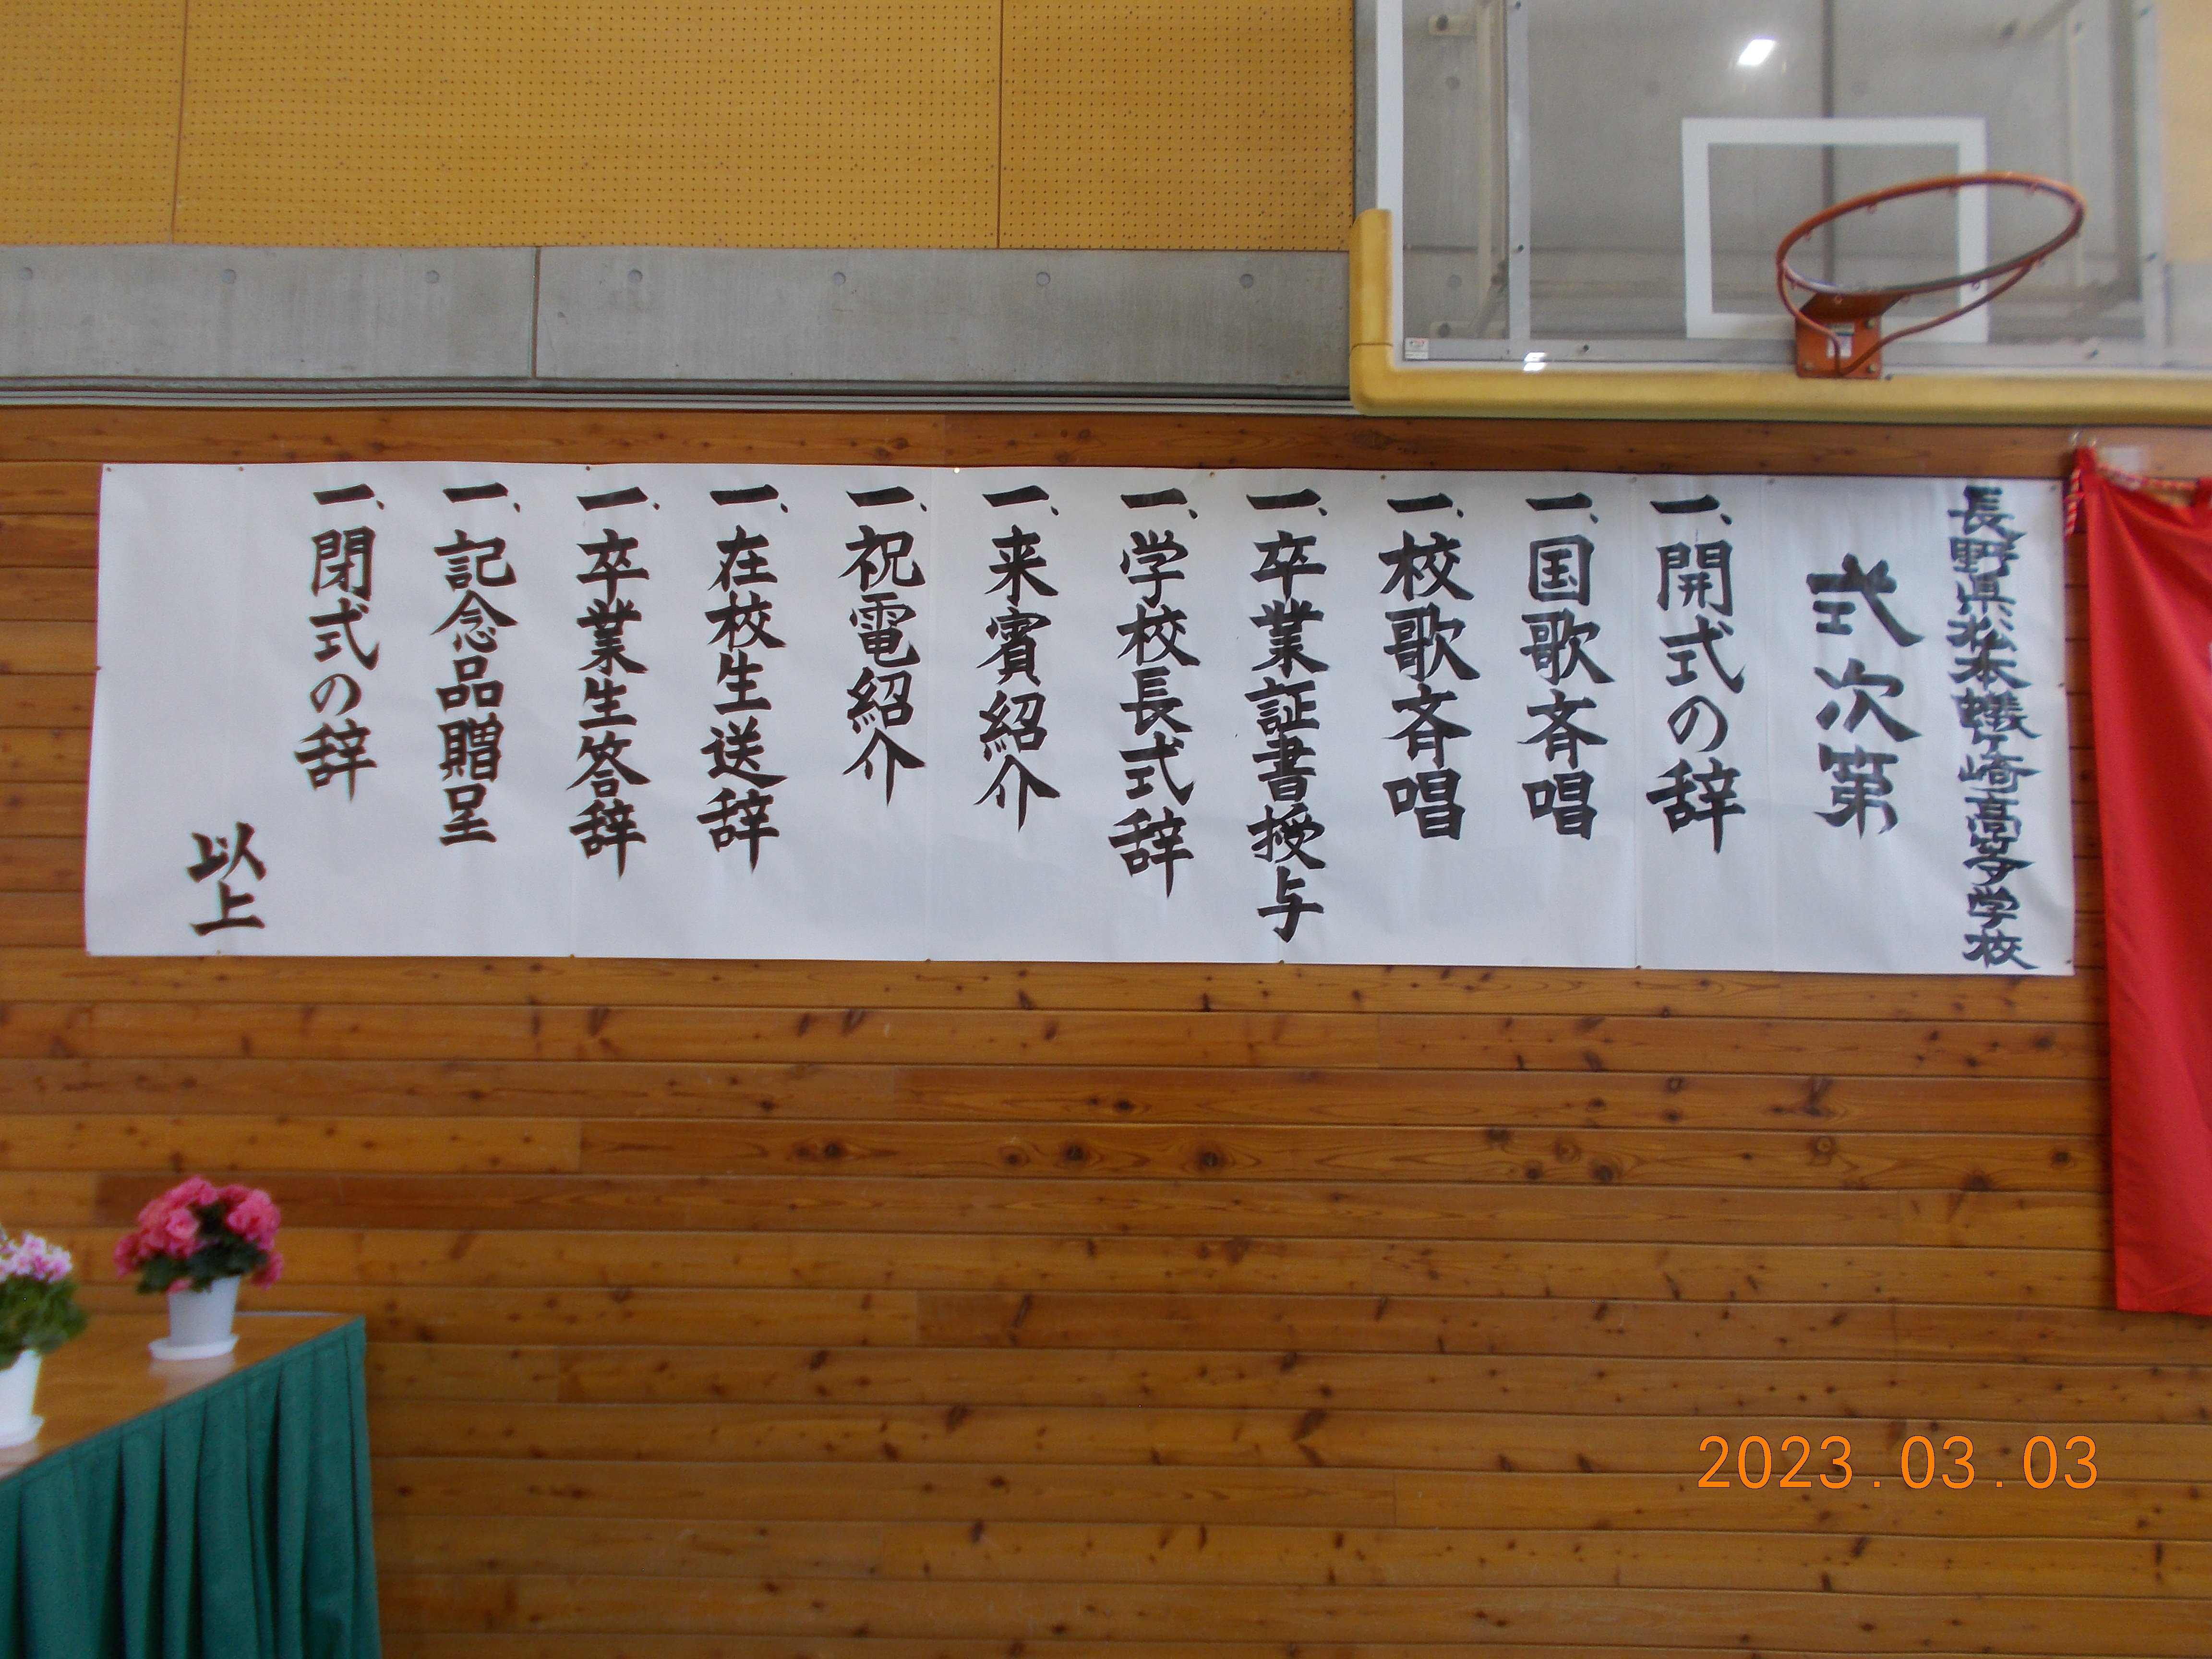 長野県松本蟻ヶ崎高等学校
式次第
一、開式の辞
一、国歌斉唱
一、校歌斉唱
一、卒業証書授与
一、学校長式辞
一、来賓紹介
一、祝電紹介
一、在校生送辞
一、卒業生答辞
一、記念品贈呈
一、閉式の辞
以上
2023.03.03